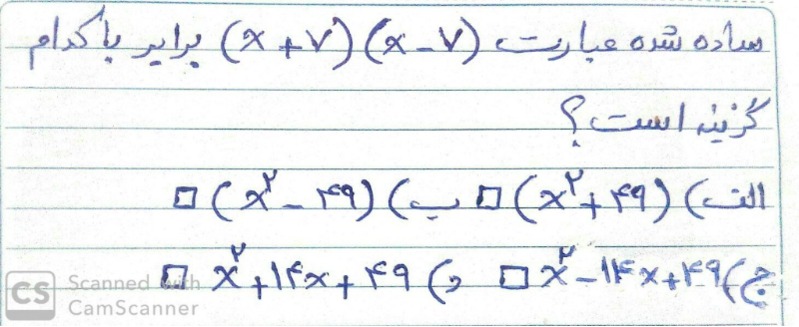 ساده شده عبارت (x + ۷) (x - ۷) برابر با کدام
گزینه است؟
الف) (x² + ۴۹) □ ب) (x² - ۴۹) □
ج) x² - ۱۴x + ۴۹ □ د) x² + ۱۴x + ۴۹ □
CS Scanned with
CamScanner